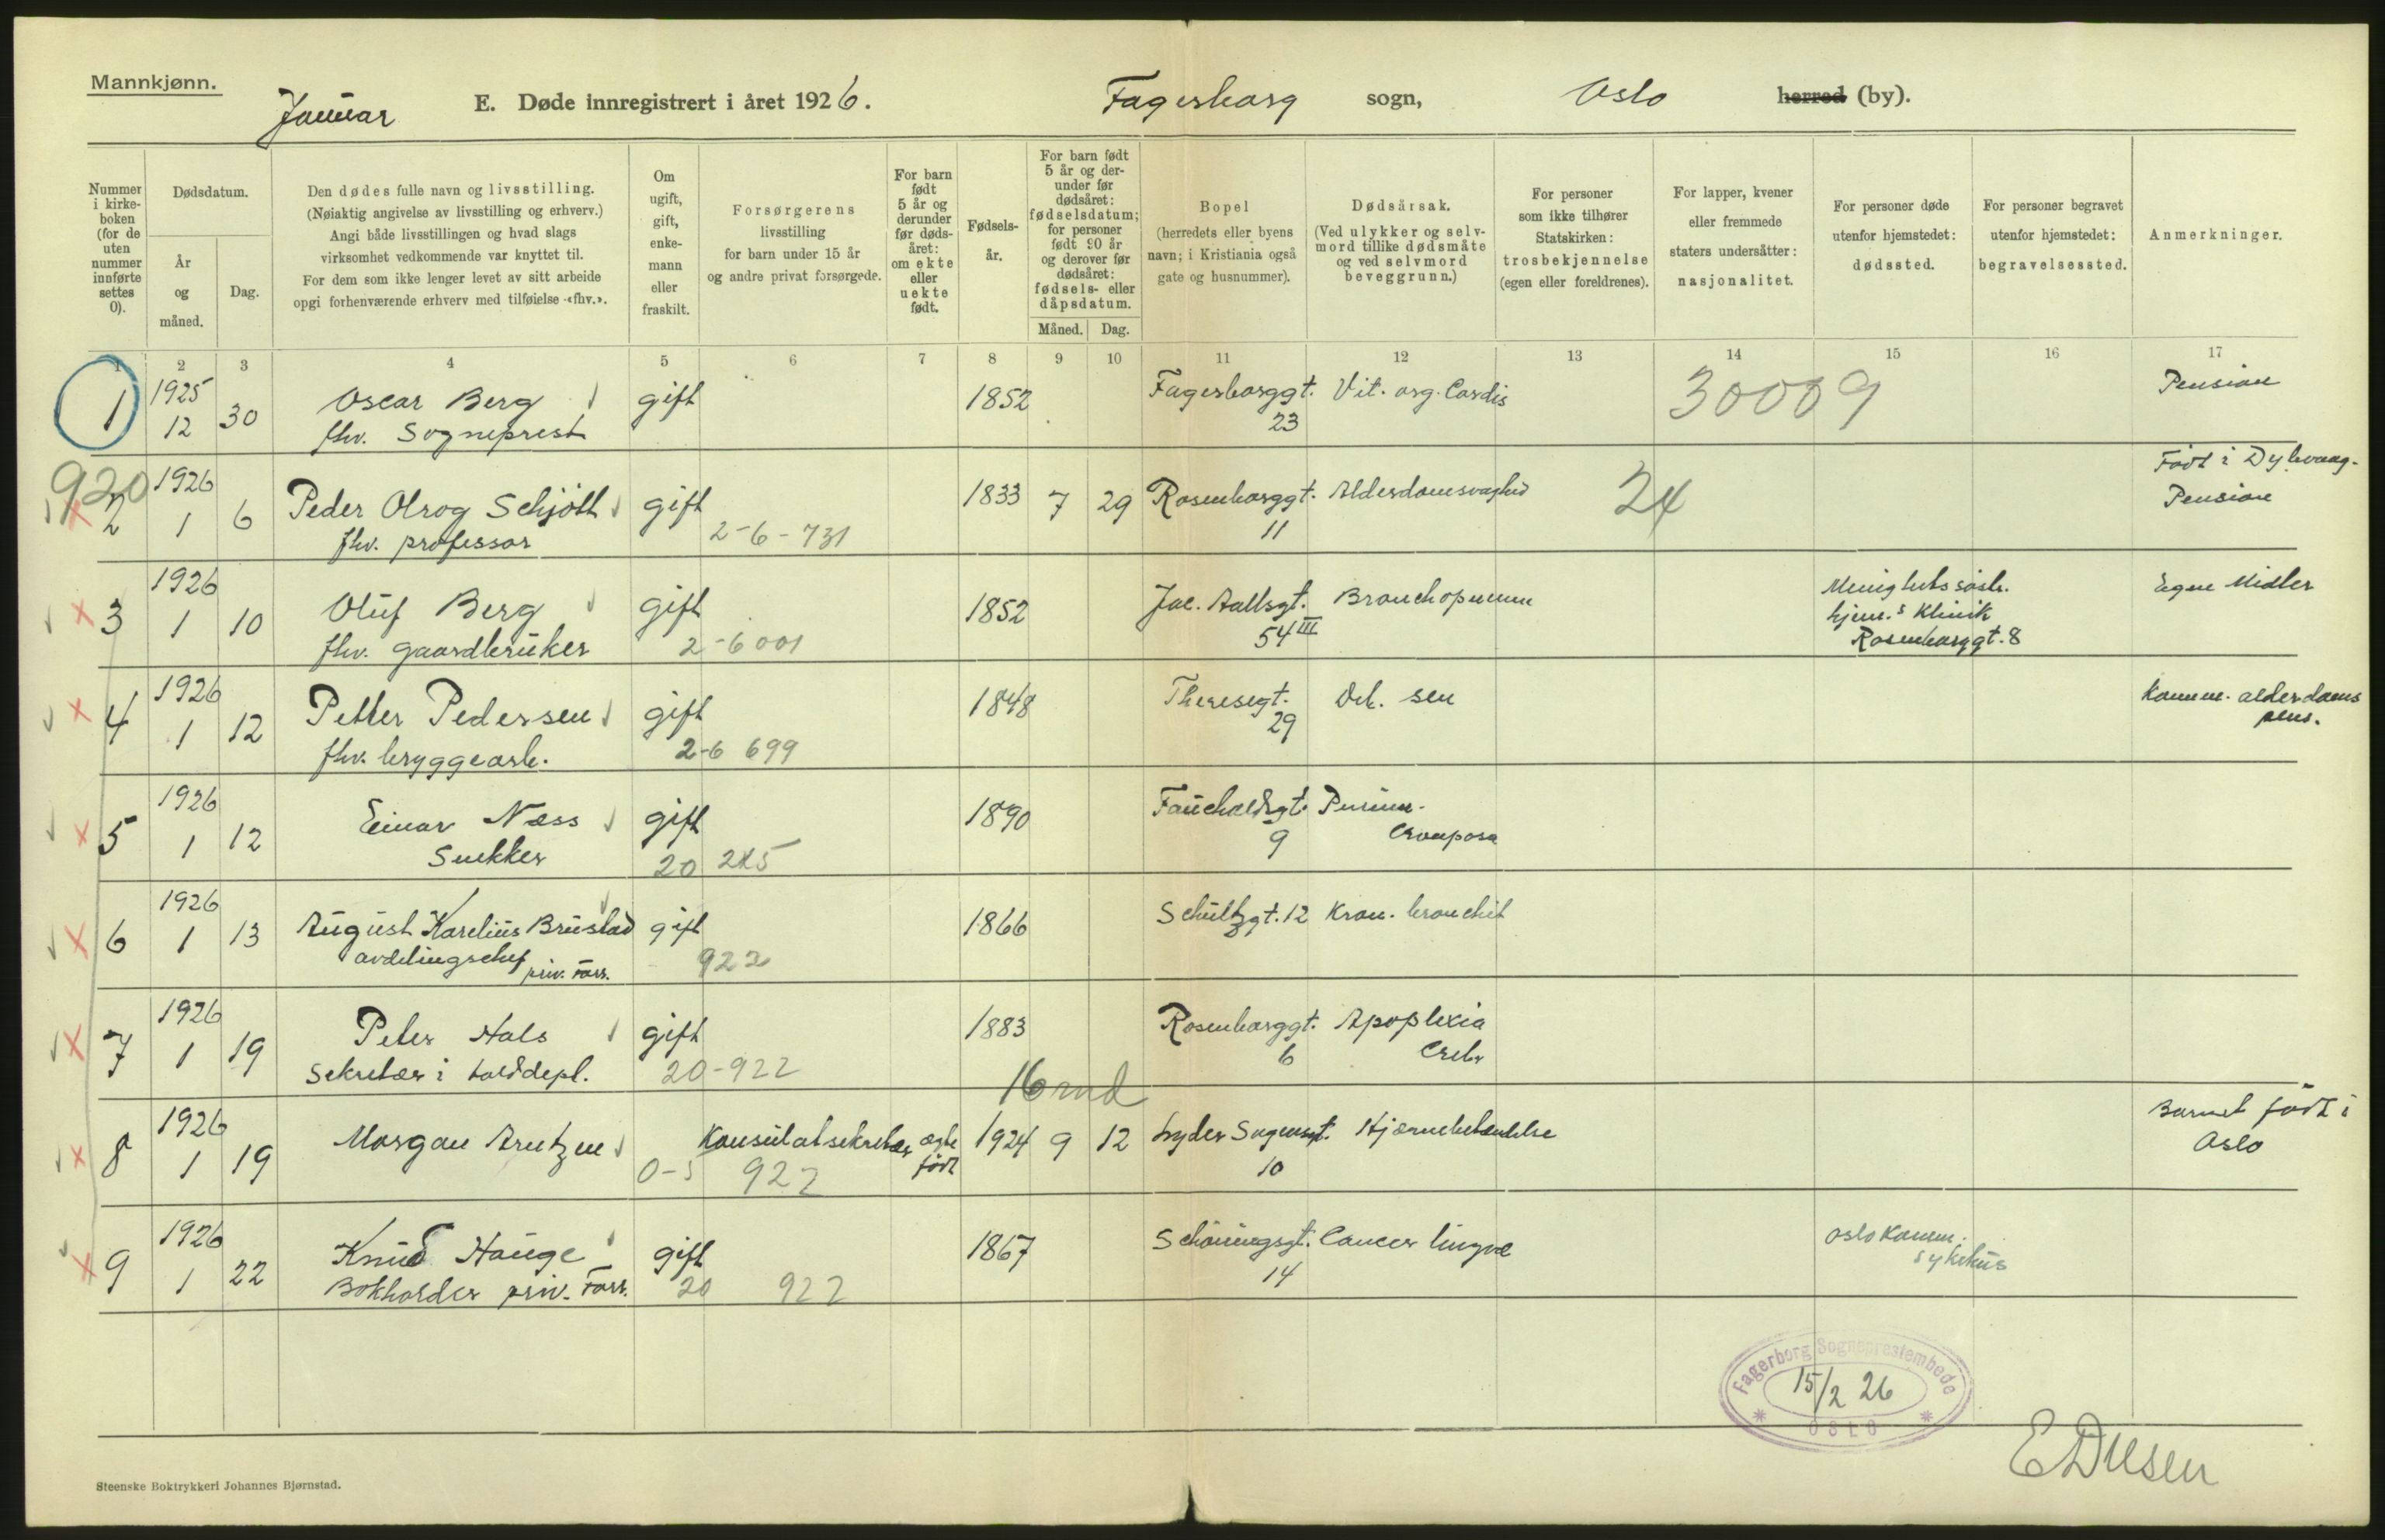 Mannkjønn.
Januar
E. Døde innregistrert i året 1926.
Fagerborg sogn, Oslo herred (by).
Nummer i kirkeboken (for de uten nummer innførte settes 0).
Dødsdatum.
År og måned.
Dag.
Den dødes fulle navn og livsstilling.
(Nøiaktig angivelse av livsstilling og erhverv.)
Angi både livsstillingen og hvad slags
virksomhet vedkommende var knyttet til.
For dem som ikke lenger levet av sitt arbeide
opgi forhenværende erhverv med tilføielse «fhv.».
Om ugift, gift, enkemann eller fraskilt.
Forsørgerens
livsstilling
for barn under 15 år
og andre privat forsørgede.
For barn født 5 år og derunder før dødsåret: om ekte eller uekte født.
Fødselsår.
For barn født 5 år og derunder før dødsåret: fødselsdatum; for personer født 90 år og derover før dødsåret: fødsels- eller dåpsdatum.
Måned. Dag.
Bopel
(herredets eller byens
navn; i Kristiania også
gate og husnummer).
Dødsårsak.
(Ved ulykker og selvmord tillike dødsmåte og ved selvmord beveggrunn.)
For personer
som ikke tilhører
Statskirken:
trosbekjennelse
(egen eller foreldrenes).
For lapper, kvener
eller fremmede
staters undersåtter:
nasjonalitet.
For personer døde
utenfor hjemstedet:
dødssted.
For personer begravet
utenfor hjemstedet:
begravelsessted.
Anmerkninger.
1 2 3 4 5 6 7 8 9 10 11 12 13 14 15 16 17
1 1925 12 30 Oscar Berg gift 1852 Fagerborggt. 23 Vit. org. Cordis 30009 Pension
fhv. Sogneprest
920
2 1926 1 6 Peder Olrog Schjött gift 1833 7 29 Rosenborggt. 11 Alderdomsvaghed 24 Født i Dybvaag. Pension
fhv. professor 2-6-731
3 1926 1 10 Oluf Berg gift 1852 Jac. Aallsgt. 54 III Bronchopneum Menighetssøst. hjem. s Klinik Rosenborggt. 8 Egne Midler
fhv. gaardbruker 2-6 001
4 1926 1 12 Petter Pedersen gift 1848 Theresegt. 29 Deb. sen Komm. alderdoms pens.
fhv. bryggearb. 2-6 699
5 1926 1 12 Einar Næss gift 1890 Faucholdsgt. 9 Pneum. Crouposa
Snekker 20
6 1926 1 13 August Karelius Brustad gift 1866 Schultzgt. 12 Kron. bronchit
avdelingschef priv. Forr. 922
7 1926 1 19 Peter Hals gift 1883 Rosenborggt. 6 Apoplexia Crebr
Sekretær i tolddept. 20-922
16 md
8 1926 1 19 Morgan Arntzen Konsulatsekretær ægte født 1924 9 12 Lyder Sagensgt. 10 Hjernebetændelse Barnet født i Oslo
0-5 922
9 1926 1 22 Knud Hauge gift 1867 Schöningsgt. 14 Cancer lingvæ Oslo Komm. sykehus
Bokholder priv. Forr. 20 922
Fagerborg Sogneprestembede
15/2 26
OSLO
Steenske Boktrykkeri Johannes Bjørnstad.